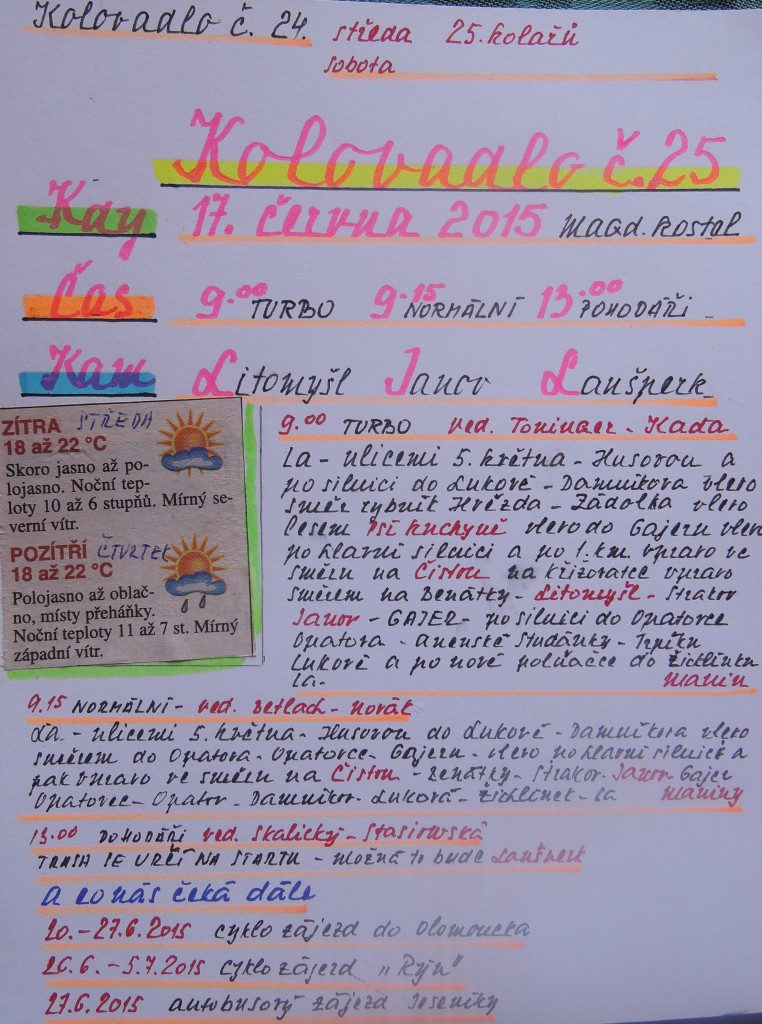 Kolovadlo č. 24. středa 25. kolařů
sobota
Kolovadlo č. 25
Kdy 17. června 2015 Magd. kostel
Čas 9.00 TURBO 9.15 NORMÁLNÍ 13.00 POHODÁŘI
Kam Litomyšl Janov Lanšperk
ZÍTRA STŘEDA
18 až 22 °C
Skoro jasno až po-
lojasno. Noční tep-
loty 10 až 6 stupňů. Mírný se-
verní vítr.
POZÍTŘÍ ČTVRTEK
18 až 22 °C
Polojasno až oblač-
no, místy přeháňky.
Noční teploty 11 až 7 st. Mírný
západní vítr.
9.00 TURBO ved. - Kada
La - ulicemi 5. května - Husovou a
po silnici do Lukové - Damníkova vlevo
směr rybník Hvězda - Zádolka vlevo
lesem Psí kuchyně vlevo do Gajeru vlevo
po hlavní silnici a po 1. km. vpravo ve
směru na Čistou na křižovatce vpravo
směrem na Benátky - Litomyšl - Strakov
Janov - GAJER - po silnici do Opatovce
Opatova - Anenské Studánky - Trpíku
Lukové a po nové polňačce do Žichlínku
La-
9.15 NORMÁLNÍ - ved. Betlach - Novák
La. - ulicemi 5. května - Husovou do Lukové - Damníkova vlevo
směrem do Opatova - Opatovce - Gajeru - vlevo po hlavní silnici a
pak vpravo ve směru na Čistou - Benátky - Strakov - Janov - Gajer
Opatovec - Opatov - Damníkov - Luková - Žichlínek - La
13.00 POHODÁŘI ved. Skalický - Stasiowská
TRASA SE URČÍ NA STARTU - možná to bude Lanšperk
A co nás čeká dále
20. - 27.6.2015 cyklo zájezd do Olomoucka
26.6. - 5.7.2015 cyklo zájezd „Rýn"
27.6.2015 autobusový zájezd Jeseníky